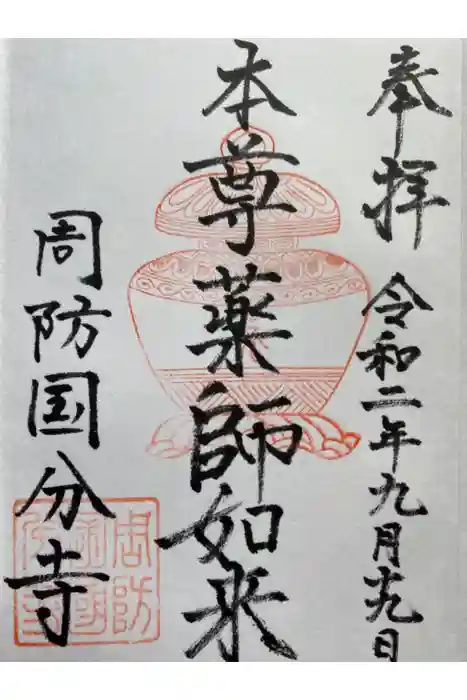 奉拝
令和二年九月廿九日
本尊薬師如来
周防国分寺
周防